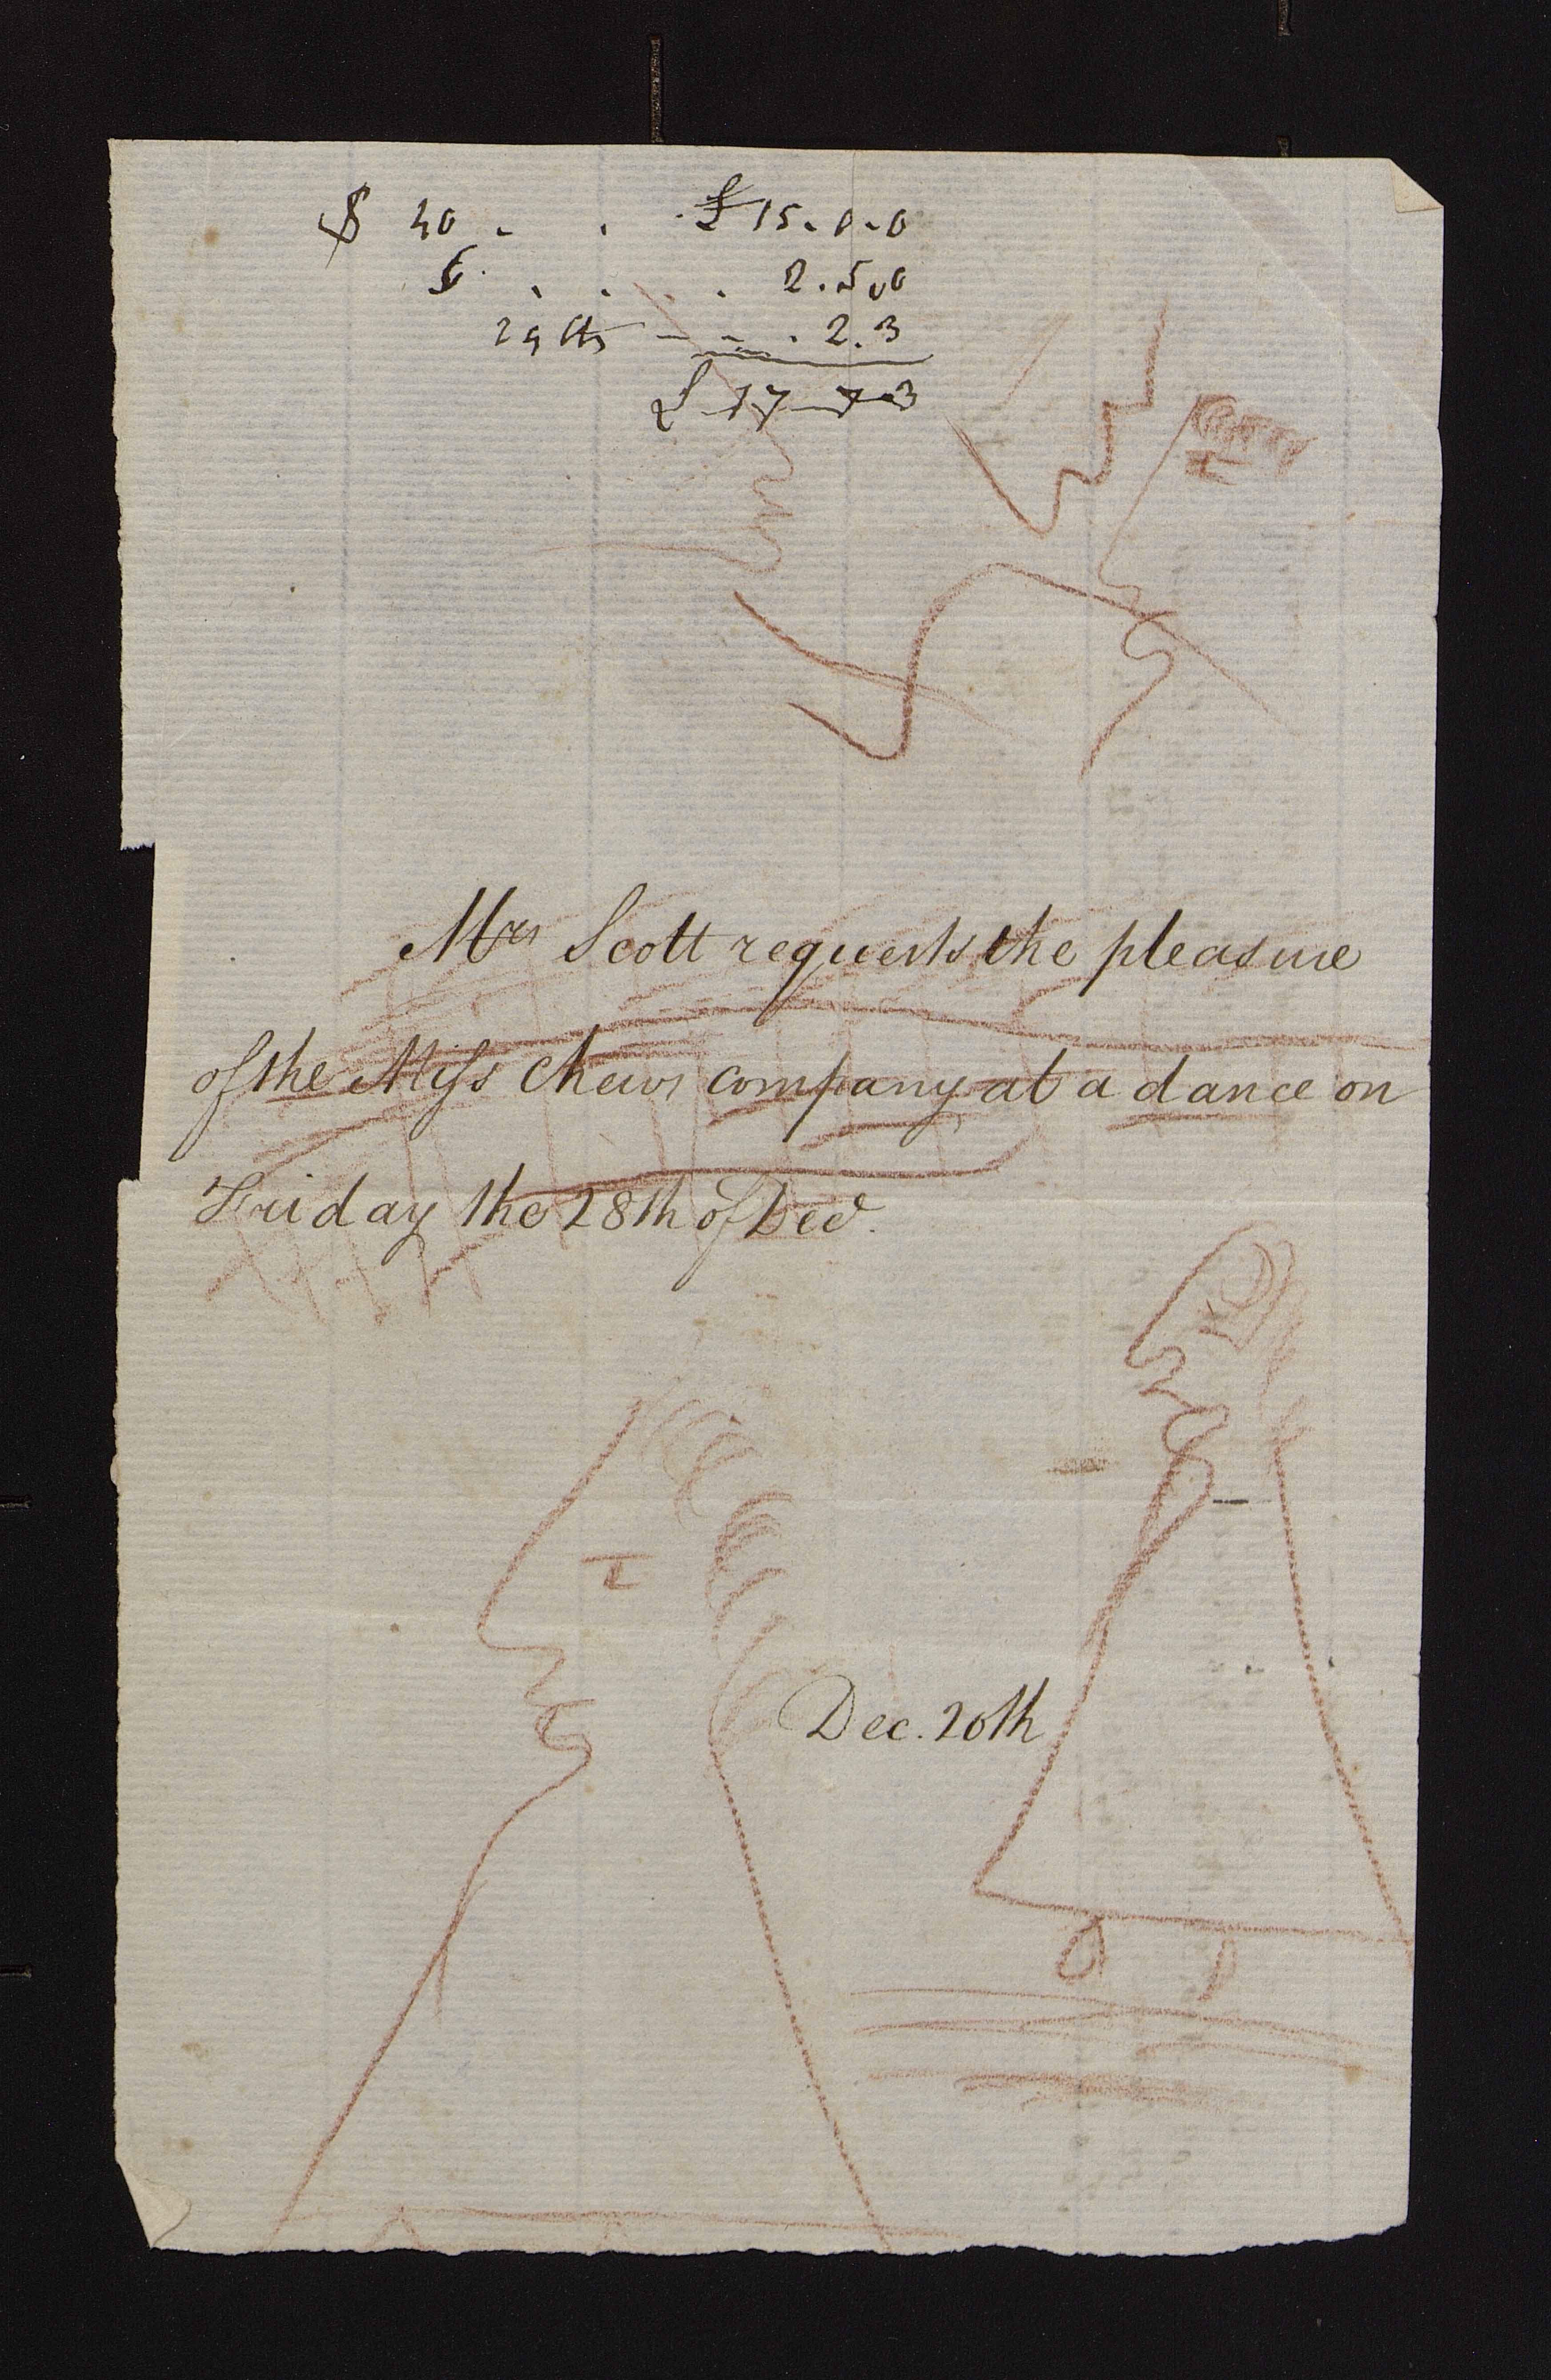 $ 40 - . £ 15.0.0
6 . . . . 2.5.0
29 Cts - - . 2.3
£ 17 7 3
Mrs Scott requests the pleasure
of the Miss Chews company at a dance on
Friday the 28th of Dec.
Dec. 20th